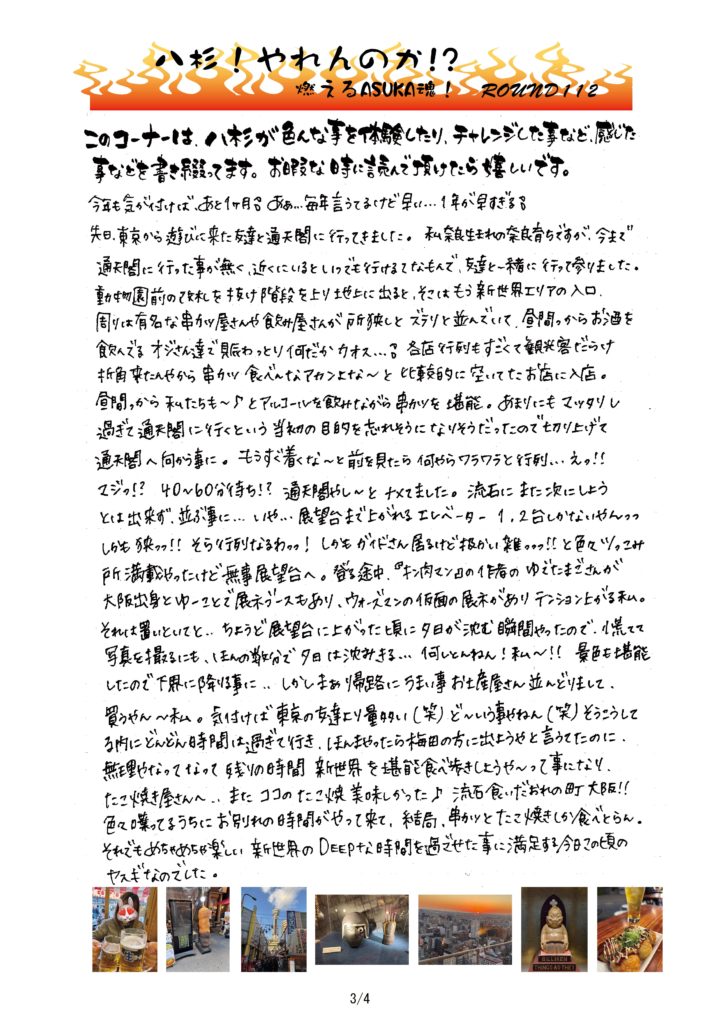 八杉！やれんのか!?
燃えるASUKA魂！ ROUND112
このコーナーは、八杉が色んな事を体験したり、チャレンジした事など、感じた
事などを書き綴ってます。お暇な時に読んで頂けたら嬉しいです。
今年も気が付けば、あと1ヶ月る あぁ…毎年言うてるけど早い…1年が早すぎるる
先日、東京から遊びに来た友達と通天閣に行ってきました。私奈良生まれの奈良育ちですが、今まで
通天閣に行った事が無く、近くにいるといつでも行けるてなもんで、友達と一緒に行って参りました。
動物園前の改札を抜け階段を上り地上に出ると、そこはもう新世界エリアの入口、
周りは有名な串カツ屋さんや飲み屋さんが所狭しとズラリと並んでいて、昼間っからお酒を
飲んでるオジさん達で賑わっとり何だかカオス…る 各店行列もすごくて観光客だらけ
折角来たんやから串カツ食べんなアカンよな〜と比較的に空いてたお店に入店。
昼間っから私たちも〜♪とアルコールを飲みながら串カツを堪能。あまりにもマッタリし
過ぎて通天閣に行くという当初の目的を忘れそうになりそうだったので切り上げて
通天閣へ向かう事に。もうすぐ着くな〜と前を見たら何やらワラワラと行列…えっ!!
マジっ!? 40〜60分待ち!? 通天閣やし〜とナメてました。流石にまた次にしよう
とは出来ず、並ぶ事に…いや…展望台まで上がれるエレベーター1,2台しかないやんっっ
しかも狭っっ!! そら行列なるわっっ！しかもガイドさん居るけど扱かい雑っっっ!!と色々ツっこみ
所満載やったけど無事展望台へ。登る途中、『キン肉マン』の作者のゆでたまごさんが
大阪出身とゆーことで展示ブースもあり、ウォーズマンの仮面の展示がありテンション上がる私。
それは置いといてと..ちょうど展望台に上がった頃に夕日が沈む瞬間やったので、慌てて
写真を撮るにも、ほんの数分で夕日は沈みきる…何しとんねん！私〜!! 景色も堪能
したので下界に降りる事に..しかしまぁ帰路にうまい事お土産屋さん並んどりまして、
買うやん〜私。気付けば東京の友達より量多い(笑)ど〜いう事やねん(笑)そうこうして
る内にどんどん時間は過ぎて行き、ほんまやったら梅田の方に出ようやと言うてたのに、
無理やなってなって残りの時間 新世界を堪能食べ歩きしようや〜って事になり、
たこ焼き屋さんへ..またココのたこ焼美味しかった♪ 流石食いだおれの町大阪!!
色々喋ってるうちにお別れの時間がやって来て、結局、串カツとたこ焼きしか食べとらん。
それでもめちゃめちゃ楽しい新世界のDEEPな時間を過ごせた事に満足する今日この頃の
ヤスギなのでした。
BILLIKEN
THINGS AS THEY
3/4